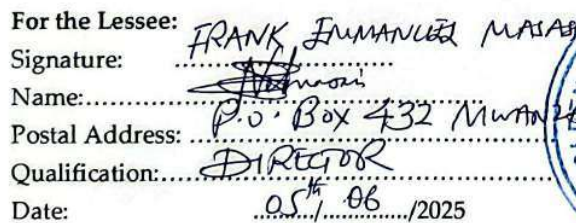 For the Lessee:
FRANK EMMANUEL MASA
Signature:
Name:
Postal Address: P.O. BOX 432 MWANZA
Qualification: DIRECTOR
Date: 05th/ 06 /2025